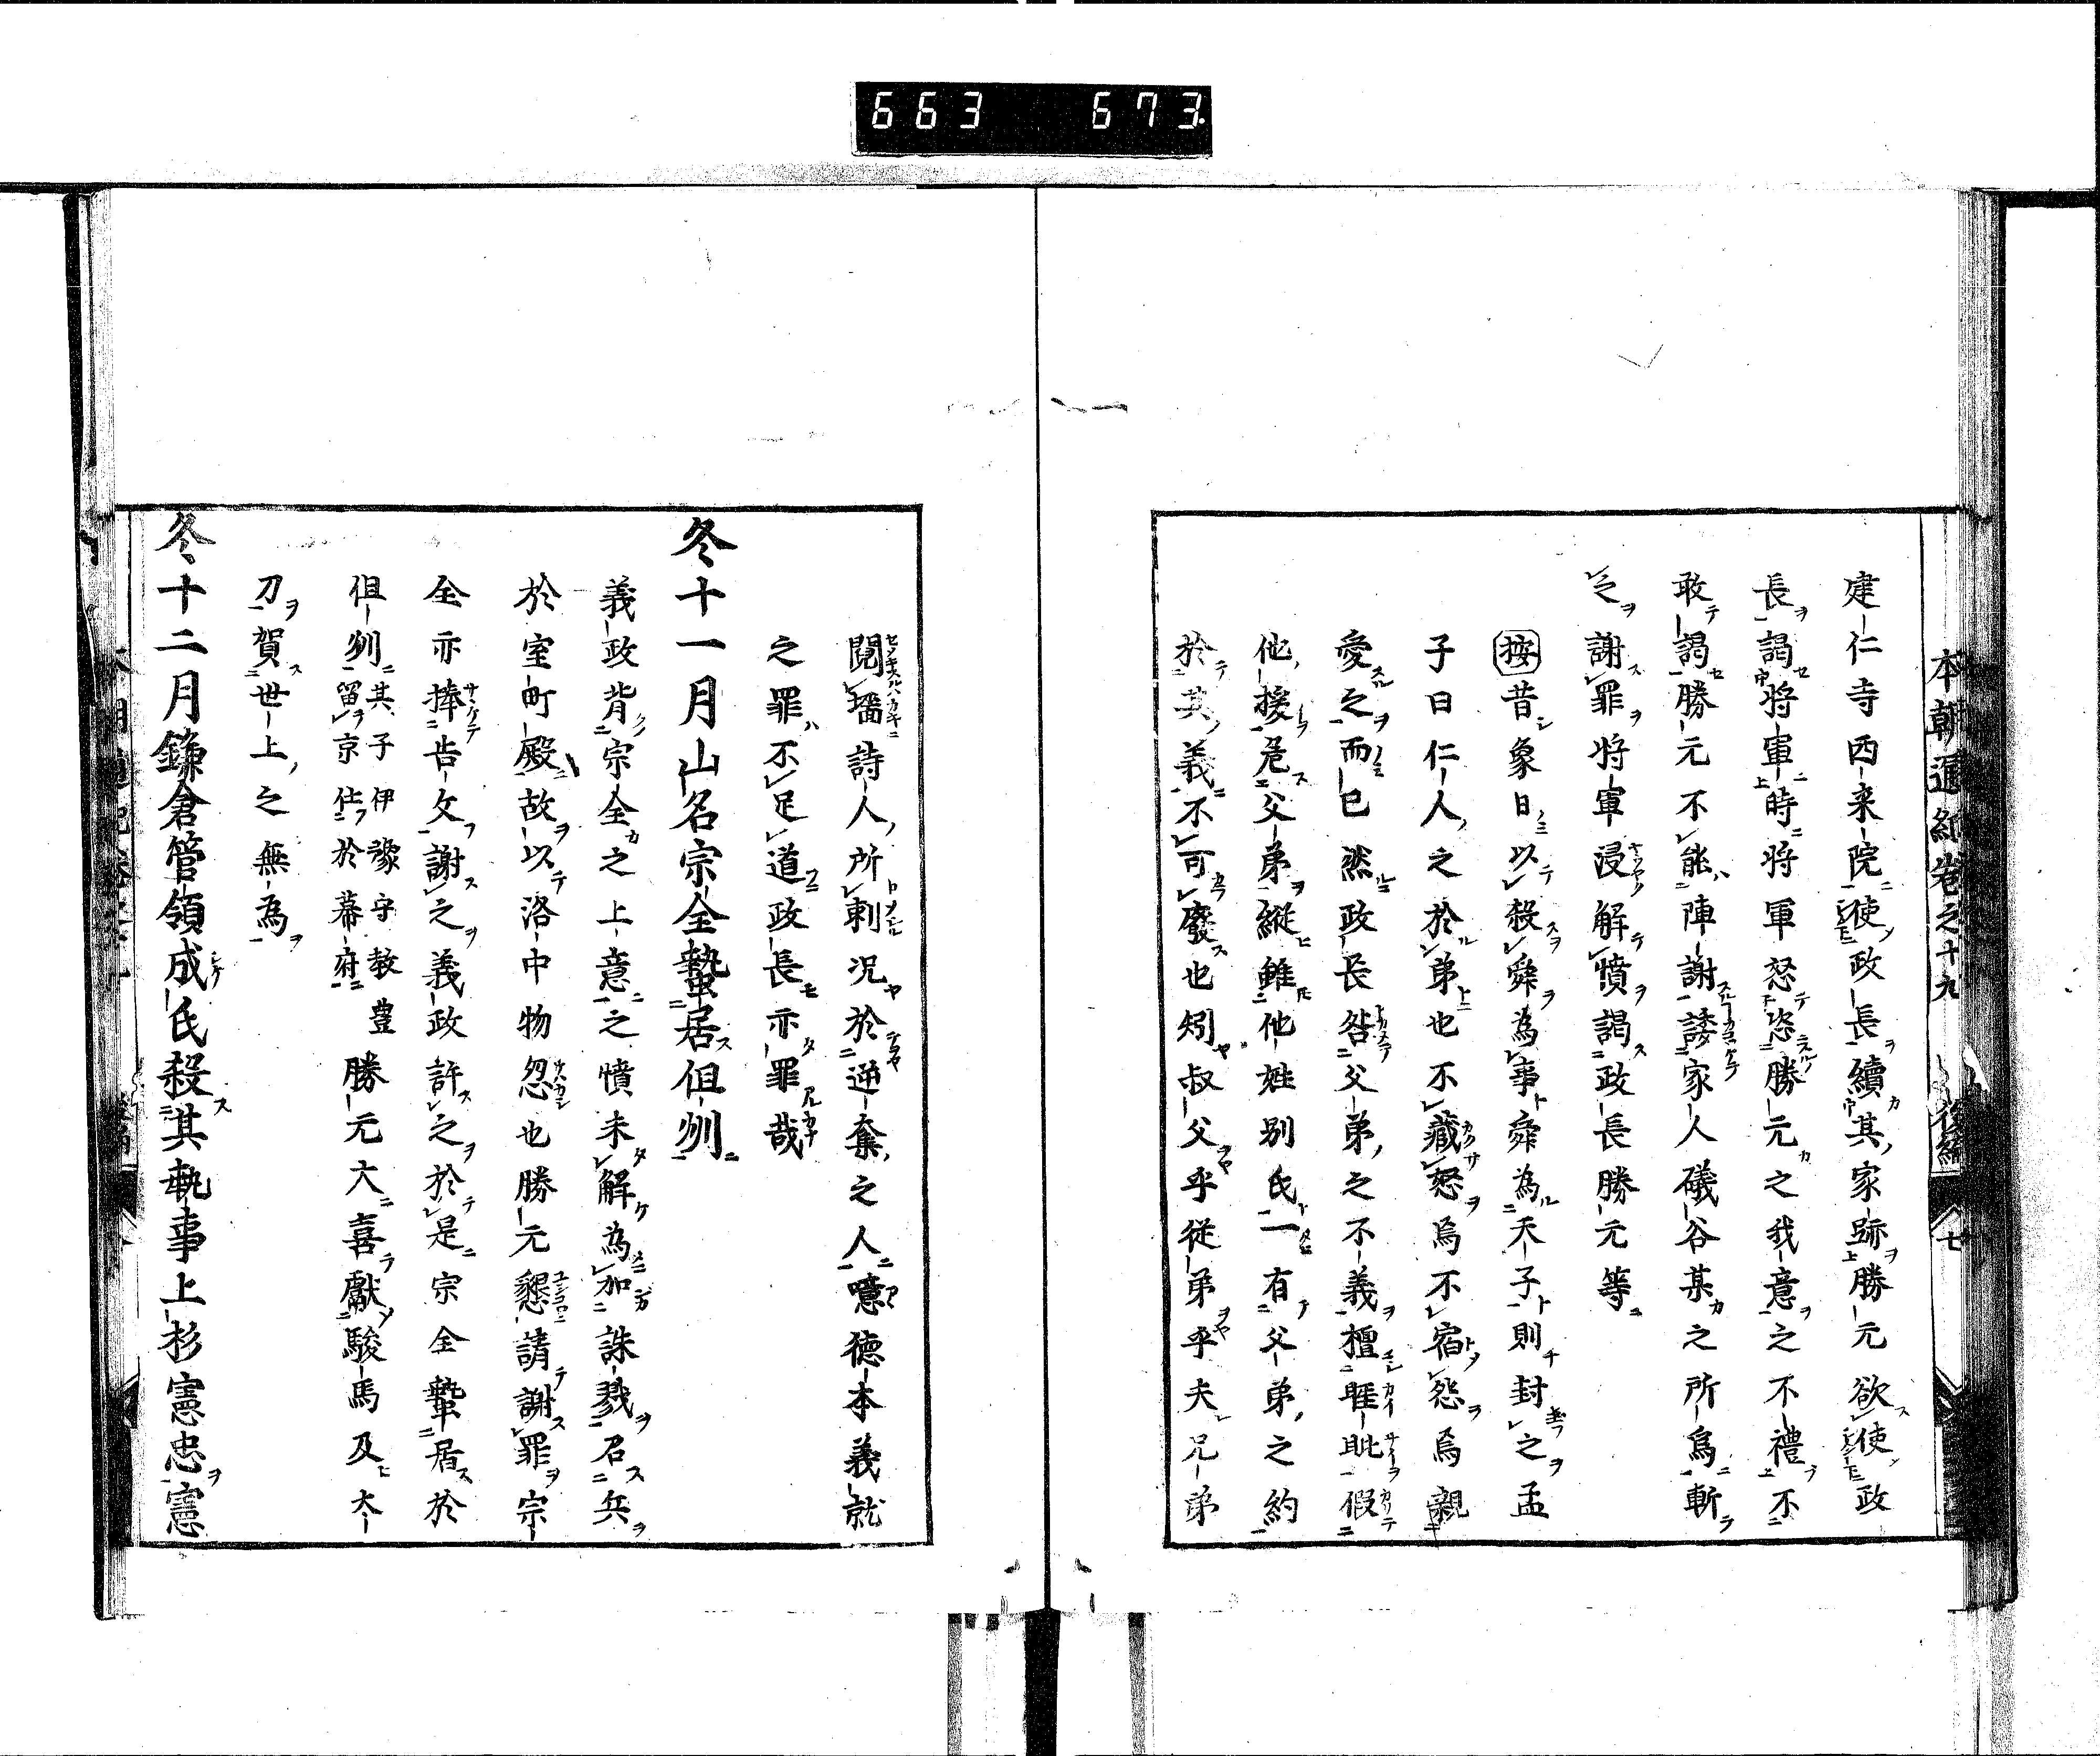 663 673.
本朝通紀卷之十九 後編 七
建仁寺西来院使政長續其家跡勝元欲使政
長謁將軍時將軍怒恣勝元之我意之不禮不
敢謁勝元不能陣謝誘家人礒谷某之所為斬
之謝罪將軍浸解憤謁政長勝元等
按昔象日以殺舜為事舜為天子則封之孟
子曰仁人之於弟也不藏怒焉不宿怨焉親
愛之而已然政長咎父弟之不義檀睚眦假
他援危父弟縦雖他姓別氏一有父弟之約
於其義不可廢也矧叔父乎従弟乎夫兄弟
鬩墻詩人所刺况於逆奪之人噫德本義就
之罪不足道政長亦罪哉
冬十一月山名宗全蟄居但刕
義政背宗全之上意之憤未解為加誅戮召兵
於室町殿故以洛中物忽也勝元懇請謝罪宗
全亦捧告文謝之義政許之於是宗全蟄居於
但刕其子伊豫守教豊留京仕於幕府勝元大喜獻駿馬及太
刀賀世上之無為
冬十二月鎌倉管領成氏殺其執事上杉憲忠憲